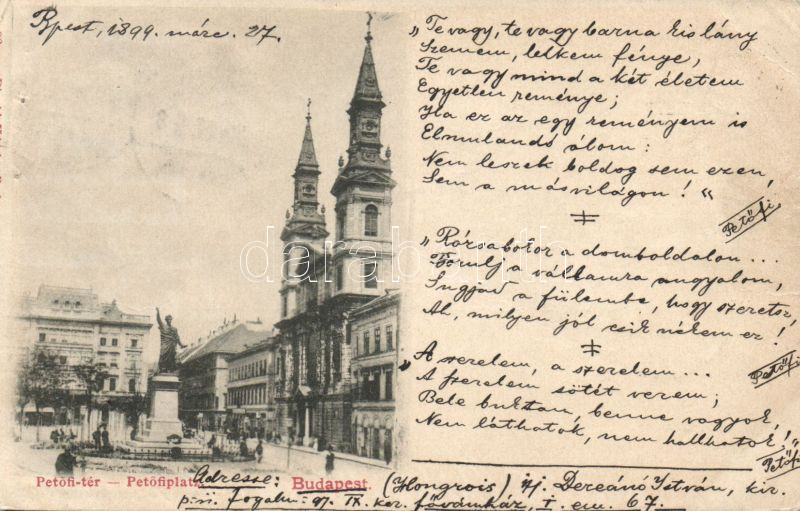 Bpest, 1899. márc. 27.
„Te vagy, te vagy barna kis lány
Szemem, lelkem fénye,
Te vagy mind a két életem
Egyetlen reménye;
Ha ez az egy reményem is
Elmulandó álom:
Nem leszek boldog sem ezen,
Sem a másvilágon!“
Petőfi
„Rózsabokor a domboldalon...
Borulj a vállamra angyalom,
Sugjad a fülembe, hogy szeretsz,
Ah, milyen jól esik nekem ez!
Petőfi
„A szerelem, a szerelem...
A szerelem sötét verem;
Bele buktam, benne vagyok,
Nem láthatok, nem hallhatok!“
Petőfi
Petőfi-tér — Petőfiplatz
Budapest.
Adresse: (Hongrois) ifj. Dezeánó István, kir.
p. ü. fogalm: IX. ker. fővámház, I. em. 67.
darabanth.com